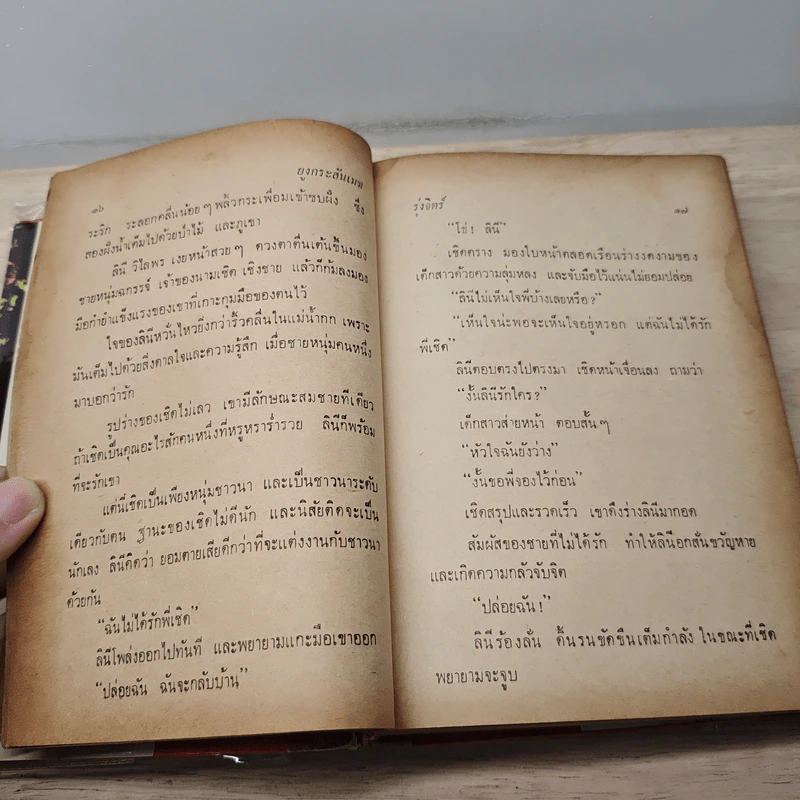 ๑๖ ยูงกระสันเมฆ
ระริก ระลอกคลื่นน้อยๆ พลิ้วกระเพื่อมเข้าซบฝั่ง ซึ่ง
สองฝั่งน้ำเต็มไปด้วยป่าไม้ และภูเขา
ลินี วิไลพร เงยหน้าสวยๆ ดวงตาตื่นเต้นขึ้นมอง
ชายหนุ่มฉกรรจ์ เจ้าของนามเชิด เชิงชาย แล้วก็ก้มลงมอง
มือกำยำแข็งแรงของเขาที่เกาะกุมมือของตนไว้
ใจของลินีหวั่นไหวยิ่งกว่าริ้วคลื่นในแม่น้ำกก เพราะ
มันเต็มไปด้วยสิ่งดาลใจและความรู้สึก เมื่อชายหนุ่มคนหนึ่ง
มาบอกว่ารัก
รูปร่างของเชิดไม่เลว เขามีลักษณะสมชายทีเดียว
ถ้าเชิดเป็นคุณอะไรสักคนหนึ่งที่หรูหราร่ำรวย ลินีก็พร้อม
ที่จะรักเขา
แต่นี่เชิดเป็นเพียงหนุ่มชาวนา และเป็นชาวนาระดับ
เดียวกับตน ฐานะของเชิดไม่ดีนัก และนิสัยติดจะเป็น
นักเลง ลินีคิดว่า ยอมตายเสียดีกว่าที่จะแต่งงานกับชาวนา
ด้วยกัน
“ฉันไม่ได้รักพี่เชิด”
ลินีโพล่งออกไปทันที และพยายามแกะมือเขาออก
“ปล่อยฉัน ฉันจะกลับบ้าน”
รุ่งจิตร์ ๑๗
“โธ่! ลินี”
เชิดคราง มองใบหน้าตลอดเรือนร่างงดงามของ
เด็กสาวด้วยความลุ่มหลง และจับมือไว้แน่นไม่ยอมปล่อย
“ลินีไม่เห็นใจพี่บ้างเลยหรือ?”
“เห็นใจน่ะพอจะเห็นใจอยู่หรอก แต่ฉันไม่ได้รัก
พี่เชิด”
ลินีตอบตรงไปตรงมา เชิดหน้าเจื่อนลง ถามว่า
“งั้นลินีรักใคร?”
เด็กสาวส่ายหน้า ตอบสั้นๆ
“หัวใจฉันยังว่าง”
“งั้นขอพี่จองไว้ก่อน”
เชิดสรุปและรวดเร็ว เขาดึงร่างลินีมากอด
สัมผัสของชายที่ไม่ได้รัก ทำให้ลินีอกสั่นขวัญหาย
และเกิดความกลัวจับจิต
“ปล่อยฉัน!”
ลินีร้องลั่น ดิ้นรนขัดขืนเต็มกำลัง ในขณะที่เชิด
พยายามจะจูบ